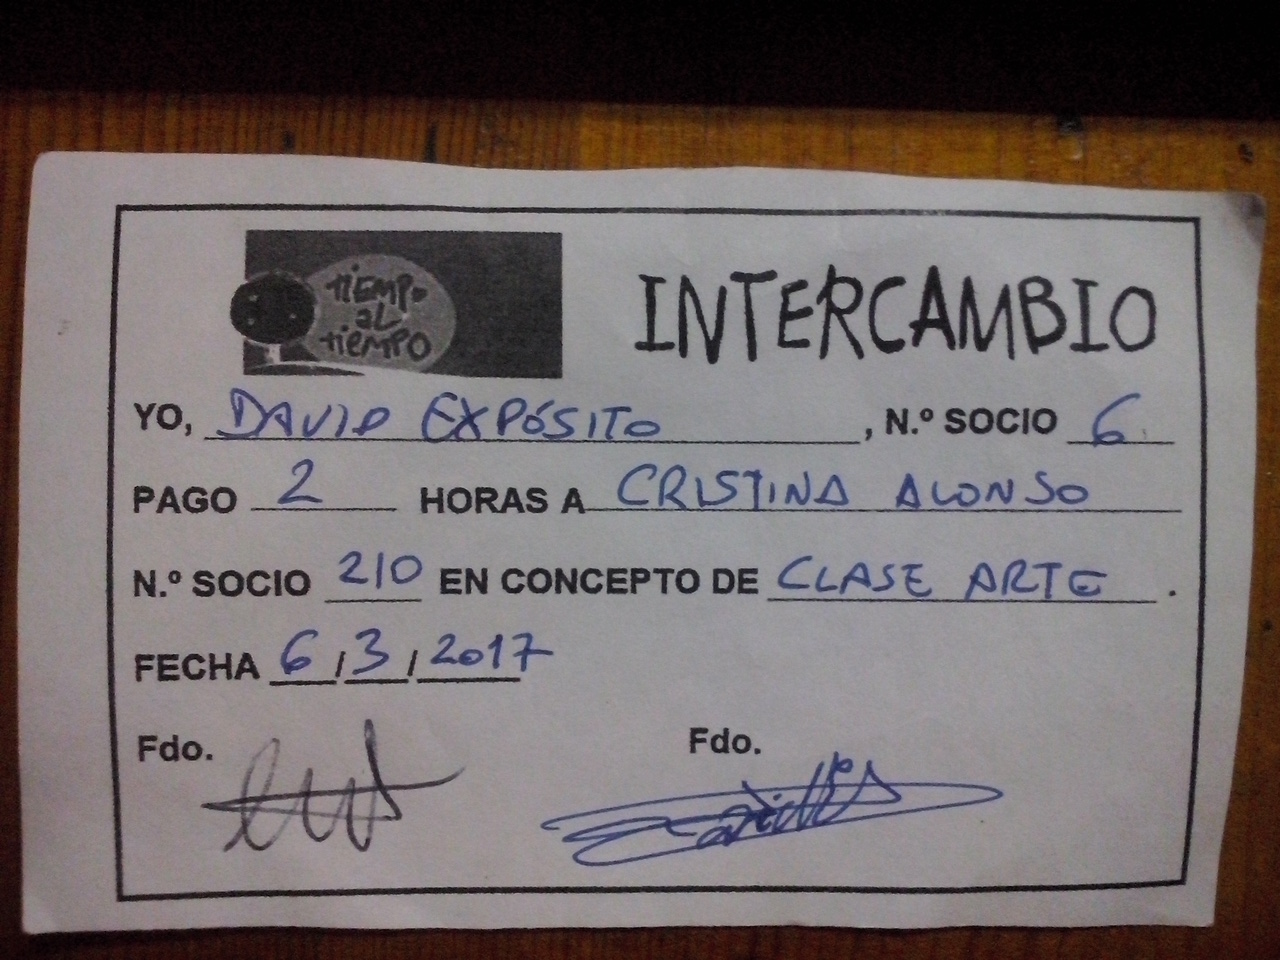 TIEMPO
AL
TIEMPO
INTERCAMBIO
YO, DAVID EXPÓSITO, N.º SOCIO 6
PAGO 2 HORAS A CRISTINA ALONSO
N.º SOCIO 210 EN CONCEPTO DE CLASE ARTE.
FECHA 6/3/2017
Fdo. Fdo.